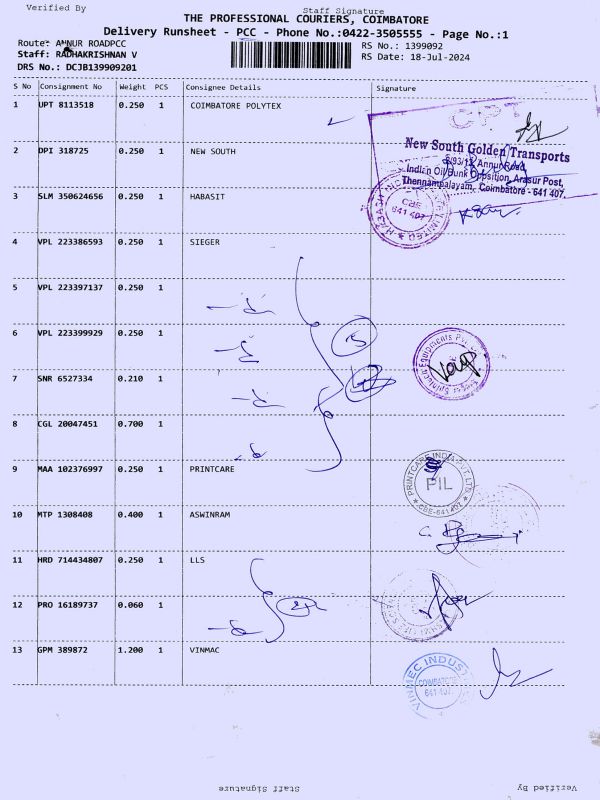 Verified By
Staff Signature
THE PROFESSIONAL COURIERS, COIMBATORE
Delivery Runsheet - PCC - Phone No.:0422-3505555 - Page No.:1
Route: ANNUR ROADPCC
RS No.: 1399092
Staff: RADHAKRISHNAN V
RS Date: 18-Jul-2024
DRS No.: DCJB139909201
S No Consignment No Weight PCS Consignee Details Signature
1 UPT 8113518 0.250 1 COIMBATORE POLYTEX
New South Golden Transports
8/93/13, Annur Road,
2 DPI 318725 0.250 1 NEW SOUTH
Indian Oil Bunk Opposition, Arasur Post,
Thennampalayam, Coimbatore - 641 407.
3 SLM 350624656 0.250 1 HABASIT
CBE
641 407
4 VPL 223386593 0.250 1 SIEGER
5 VPL 223397137 0.250 1
6 VPL 223399929 0.250 1
5
7 SNR 6527334 0.210 1
8 CGL 20047451 0.700 1
9 MAA 102376997 0.250 1 PRINTCARE
PRINTCARE INDIA PVT. LTD
PIL
CBE-641 407
10 MTP 1308408 0.400 1 ASWINRAM
11 HRD 714434807 0.250 1 LLS
12 PRO 16189737 0.060 1
13 GPM 389872 1.200 1 VINMAC
VINMEC INDUST
COIMBATORE
641 407.
Staff Signature
Verified By